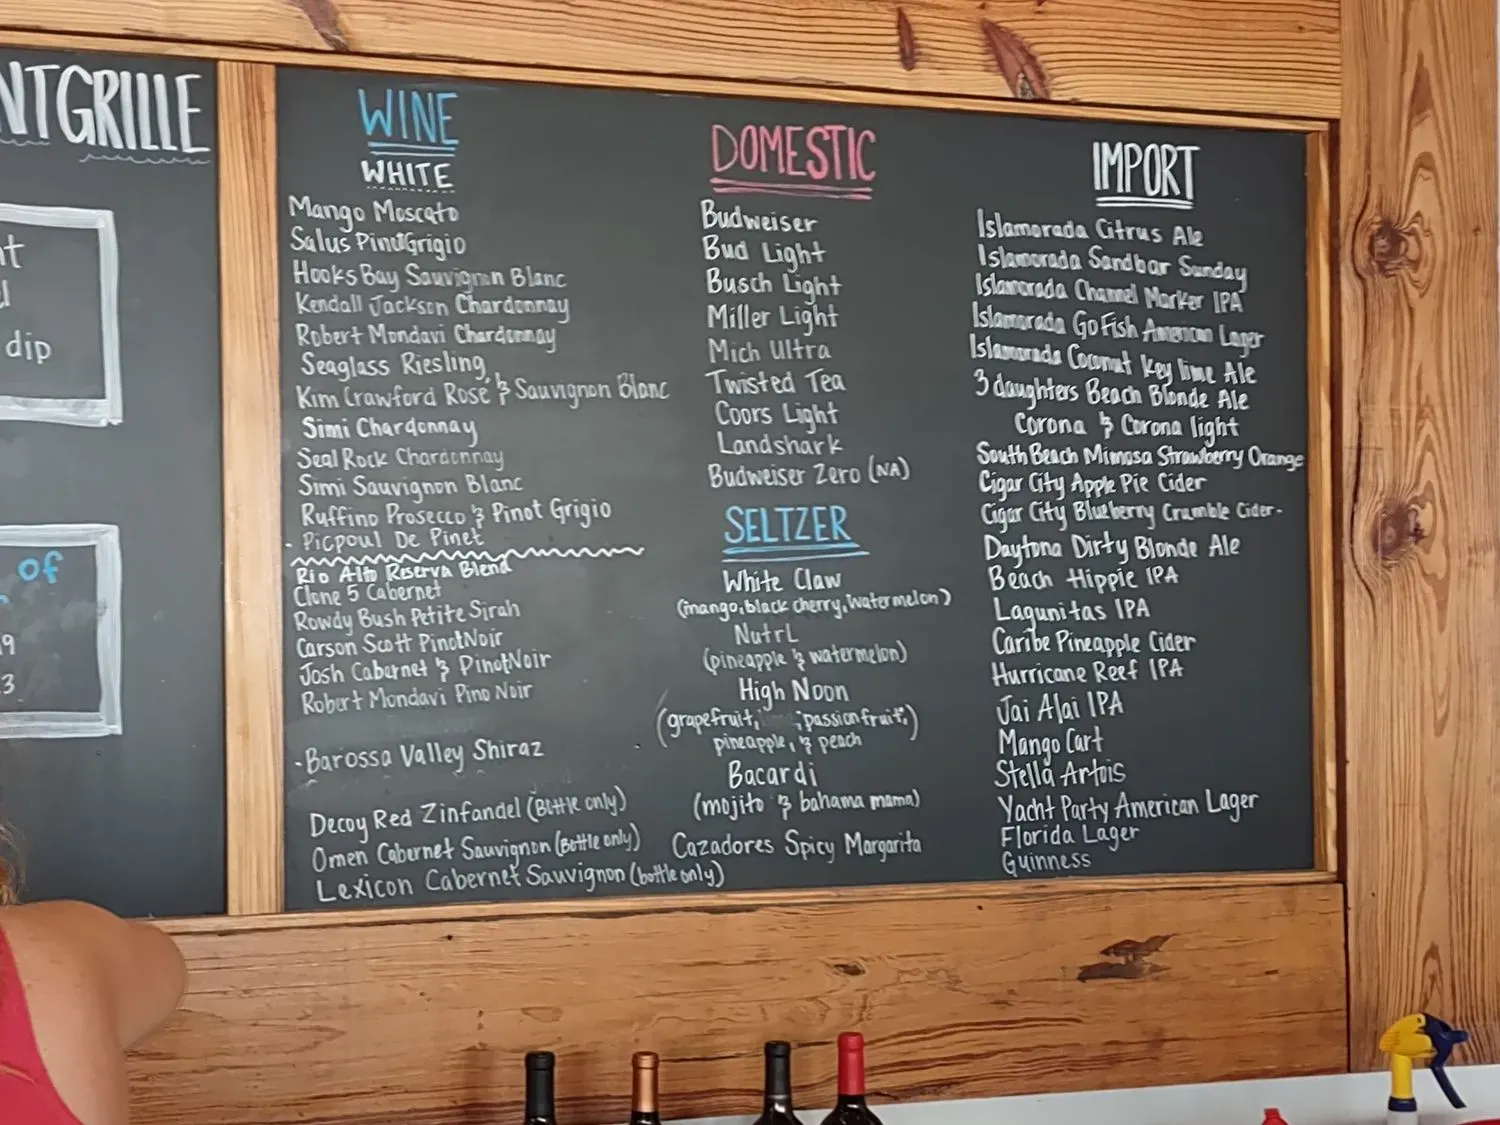 NTGRILLE
nt
l
dip
of
9
3
WINE
WHITE
Mango Moscato
Salus PinotGrigio
Hooks Bay Sauvignon Blanc
Kendall Jackson Chardonnay
Robert Mondavi Chardonnay
Seaglass Riesling
Kim Crawford Rosé & Sauvignon Blanc
Simi Chardonnay
Seal Rock Chardonnay
Simi Sauvignon Blanc
Ruffino Prosecco & Pinot Grigio
- Picpoul De Pinet
Rio Alto Reserva Blend
Clone 5 Cabernet
Rowdy Bush Petite Sirah
Carson Scott PinotNoir
Josh Cabernet & PinotNoir
Robert Mondavi Pino Noir
-Barossa Valley Shiraz
Decoy Red Zinfandel (Bottle only)
Omen Cabernet Sauvignon (Bottle only)
Lexicon Cabernet Sauvignon (bottle only)
DOMESTIC
Budweiser
Bud Light
Busch Light
Miller Light
Mich Ultra
Twisted Tea
Coors Light
Landshark
Budweiser Zero (NA)
SELTZER
White Claw
(mango, black cherry, watermelon)
NutrL
(pineapple & watermelon)
High Noon
(grapefruit, ; passionfruit,)
pineapple, & peach
Bacardi
(mojito & bahama mama)
Cazadores Spicy Margarita
IMPORT
Islamorada Citrus Ale
Islamorada Sandbar Sunday
Islamorada Channel Marker IPA
Islamorada Go Fish American Lager
Islamorada Coconut Key lime Ale
3 daughters Beach Blonde Ale
Corona & Corona light
South Beach Mimosa Strawberry Orange
Cigar City Apple Pie Cider
Cigar City Blueberry Crumble Cider-
Daytona Dirty Blonde Ale
Beach Hippie IPA
Lagunitas IPA
Caribe Pineapple Cider
Hurricane Reef IPA
Jai Alai IPA
Mango Cart
Stella Artois
Yacht Party American Lager
Florida Lager
Guinness